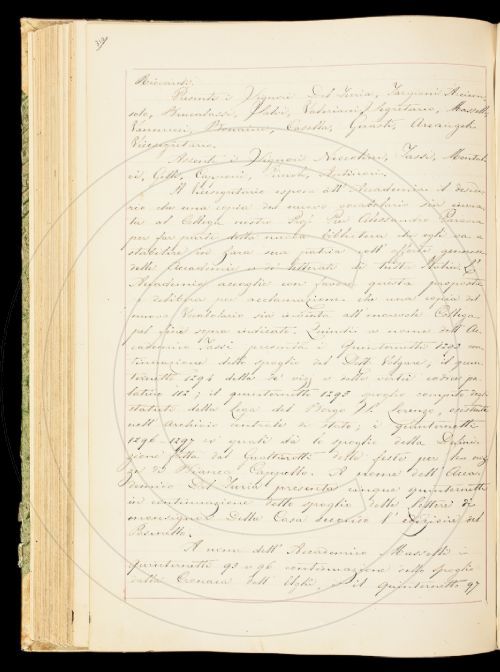 Riccardi.
Presenti i Signori Del Furia, Targioni Arciconsolo, Bencini
solo, Valeriani Segretario,
Vannucci, Bonaini, Casella, Guasti, Arcangeli
Vicesegretario.
Assenti i Signori Niccolini, Tassi,
Gelli, Capponi,
Il Vicesegretario espose all'Accademia il deside-
rio che una copia del nuovo vocabolario sia invia-
ta al Collega nostro Prof. Pier Alessandro Paravia
per far parte della nuova biblioteca che egli va a
stabilire in Zara sua patria coll'offerte generose
delle Accademie e dei letterati di tutta Italia. L'
Accademia accoglie con favore questa proposta
e delibera per acclamazione che una copia del
nuovo Vocabolario sia inviata all'onorevole Collega
pel fine sopra indicato. Quindi a nome dell'Ac-
cademico Tassi presenta il quinternetto 1293 con-
tinuazione dello spoglio del Volgare, il quin-
ternetto 1294 della codice pa-
latino 112; il quinternetto 1295 spoglio compito degli
statuti della Lega del Borgo S. Lorenzo, esistente
nell'Archivio centrale di Stato; i quinternetti
1296-1297 ne' quali dà lo spoglio della Descri-
zione fatta dal Gualterotti delle feste per le noz-
ze di Bianca Cappello. A nome dell'Acca-
demico Del Furia presenta cinque quinternetti
in continuazione dello spoglio delle lettere di
monsignor Della Casa secondo l'edizione del
Pasinello.
A nome dell'Accademico Masselli i
quinternetti 95 e 96 continuazione dello spoglio
della Cronaca dell' e il quinternetto 97